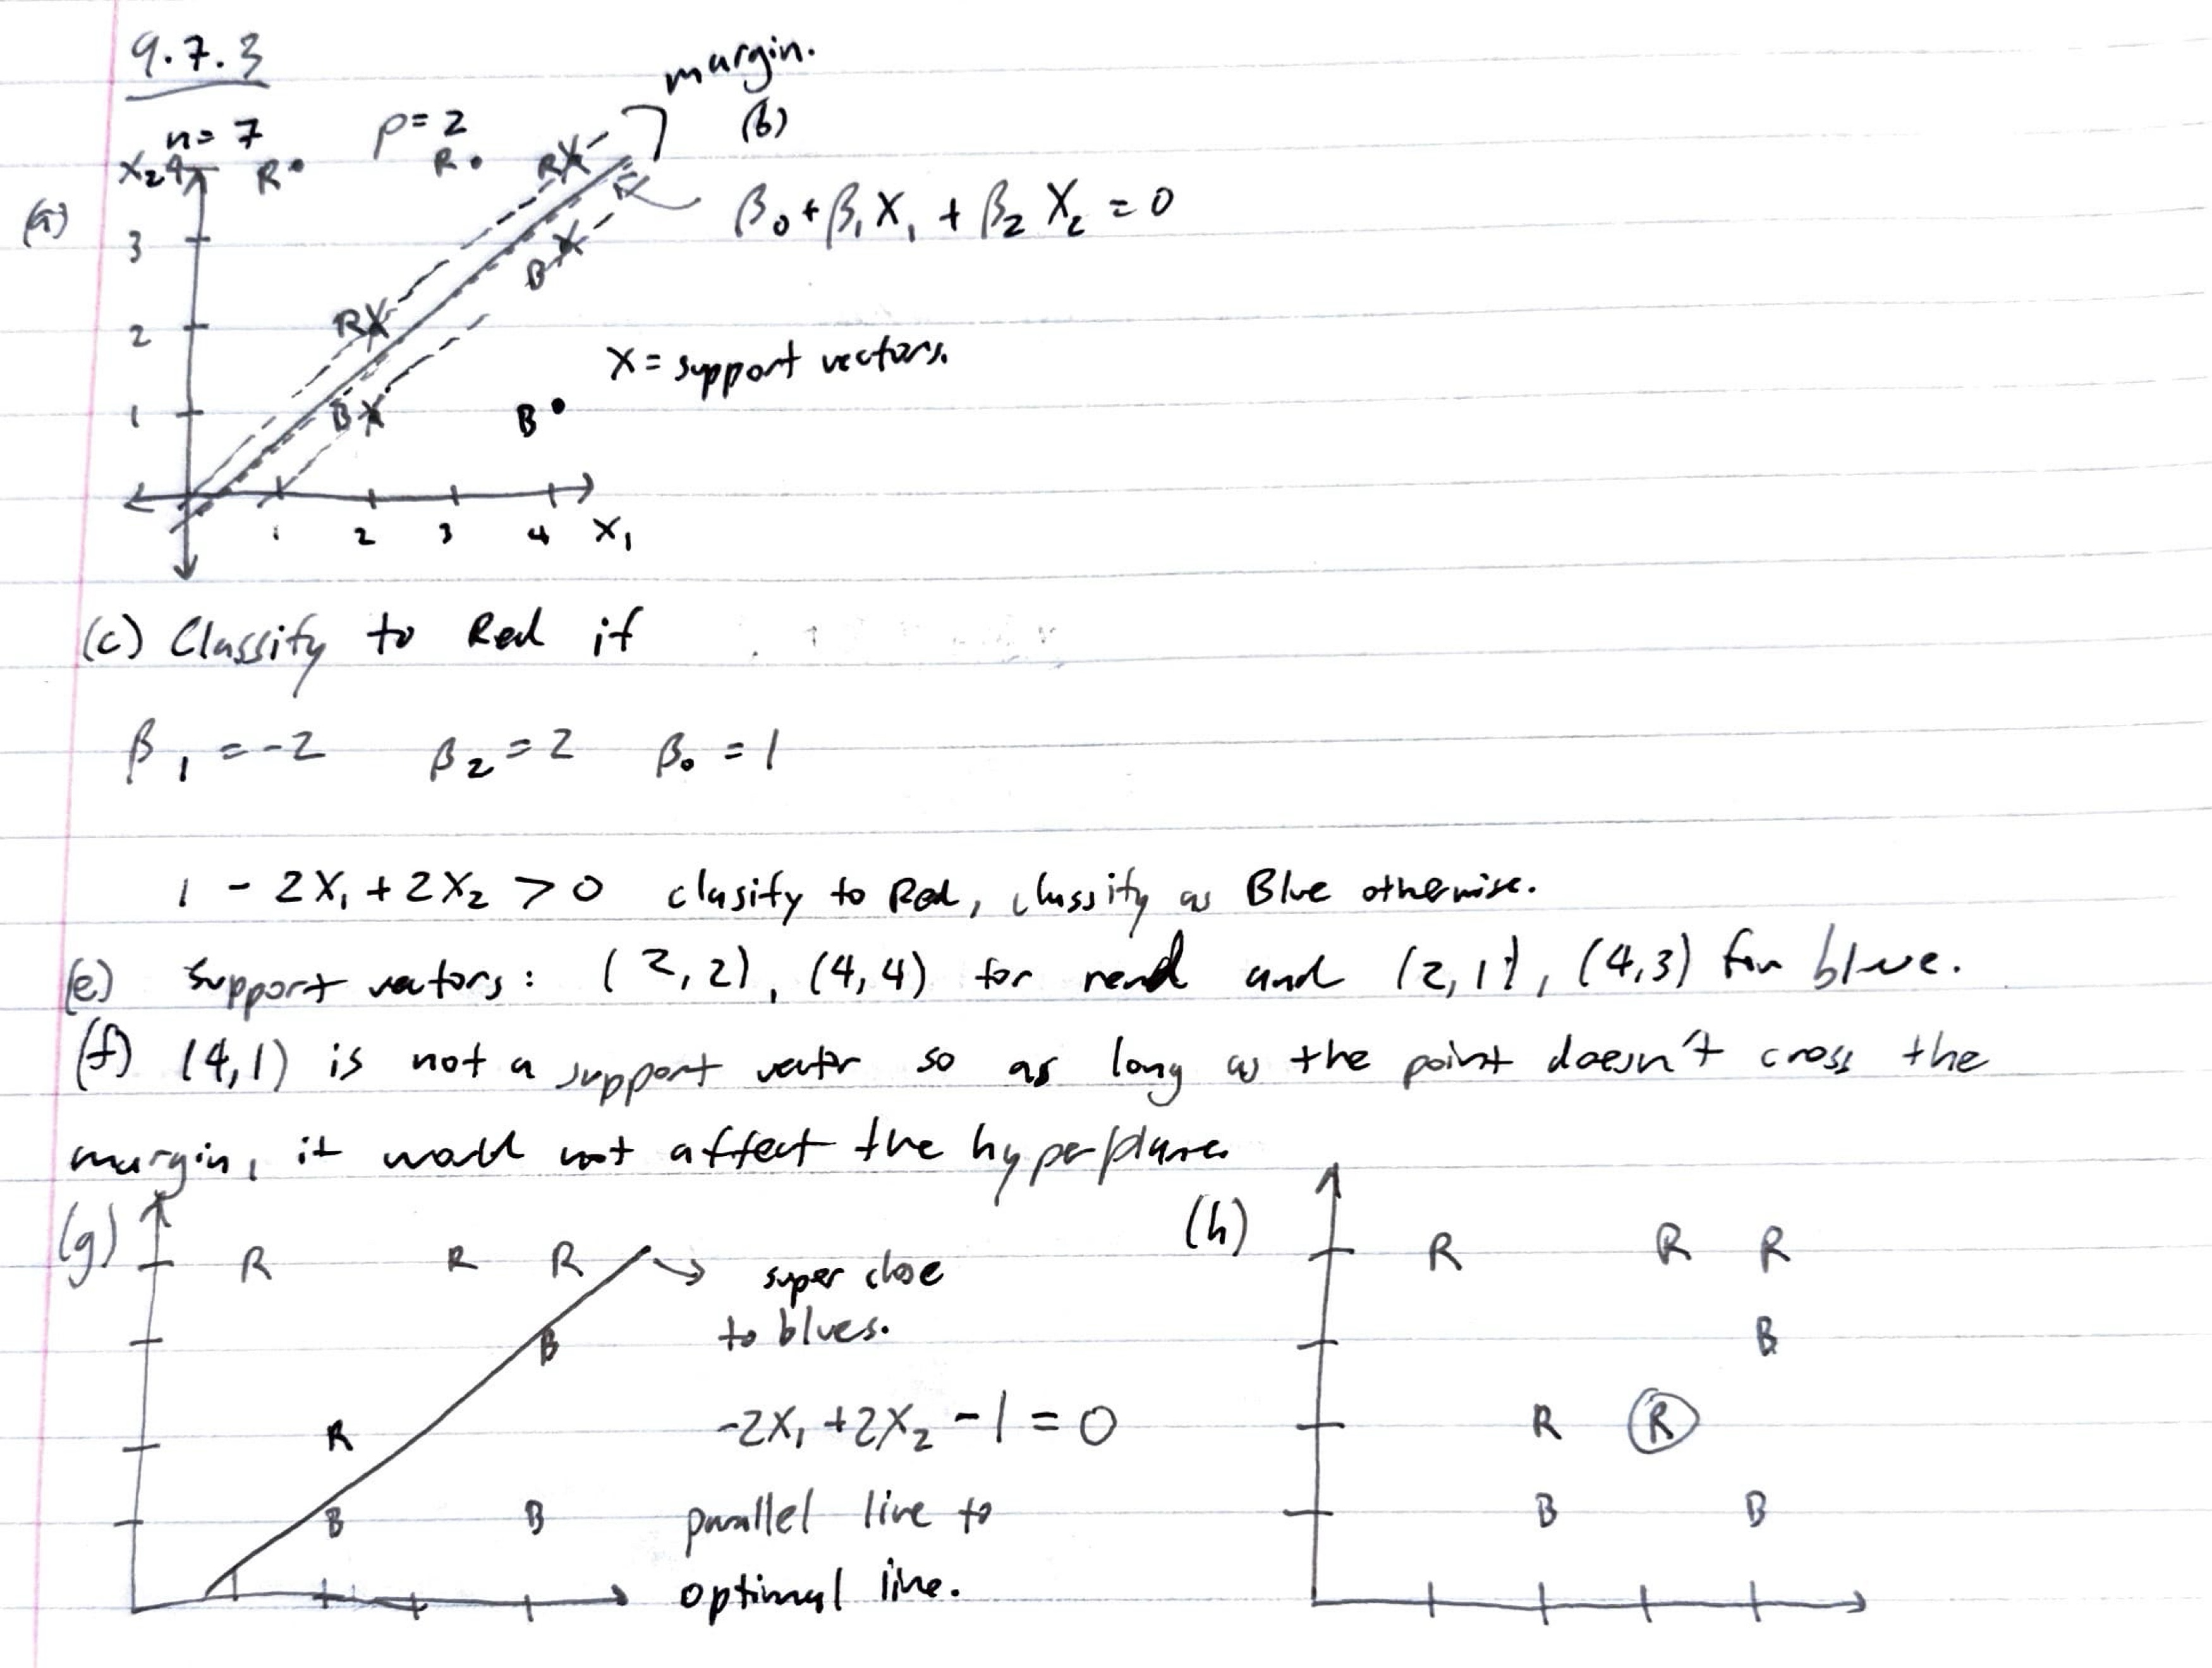 9.7.3
n=7 p=2
margin.
(b)
X₂ 4 R R RX
(a)
β₀+β₁X₁ + β₂X₂ = 0
3
BX
2 RX
X = support vectors.
1 BX B
1 2 3 4 X₁
(c) Classify to Red if
β₁ = -2 β₂ = 2 β₀ = 1
1 - 2X₁ + 2X₂ > 0 clasify to Red, classify as Blue otherwise.
(e) Support vectors: (2,2), (4,4) for rend and (2,1), (4,3) for blue.
(f) (4,1) is not a support vector so as long as the point doesn't cross the
margin, it would not affect the hyperplane.
(g) R R R
super close
to blues.
B
R
-2X₁ + 2X₂ - 1 = 0
B B
parallel line to
optimal line.
(h) R R R
B
R R
B B